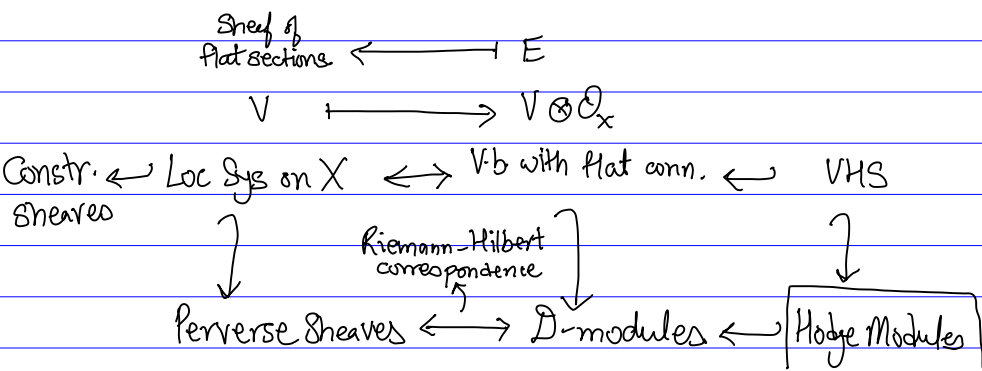 Sheaf of
flat sections ⟵⊣ E
V ⟼ V ⊗ O_x
Constr. ↩ Loc Sys on X ⟷ V.b with flat conn. ↩ VHS
sheaves
Riemann-Hilbert
correspondence
Perverse Sheaves ⟷ D-modules ↩ Hodge Modules